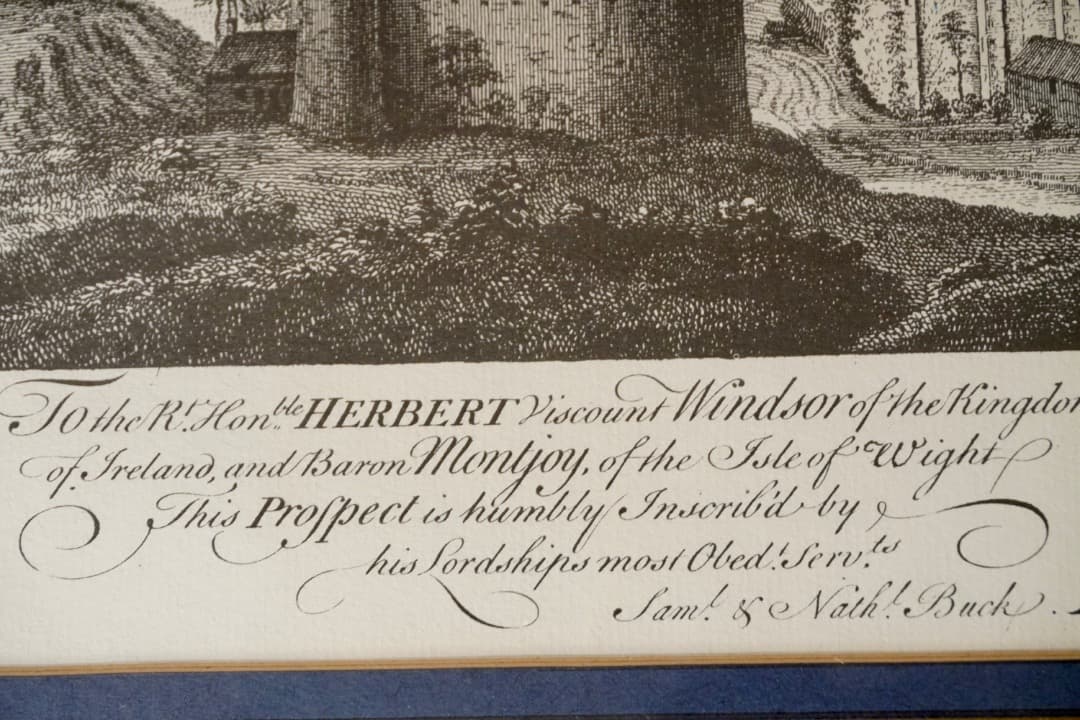 To the Rt. Honble. HERBERT Viscount Windsor of the Kingdom
of Ireland, and Baron Montjoy, of the Isle of Wight
This Prospect is humbly Inscrib'd by
his Lordships most Obedt. Servts.
Saml. & Nathl. Buck.